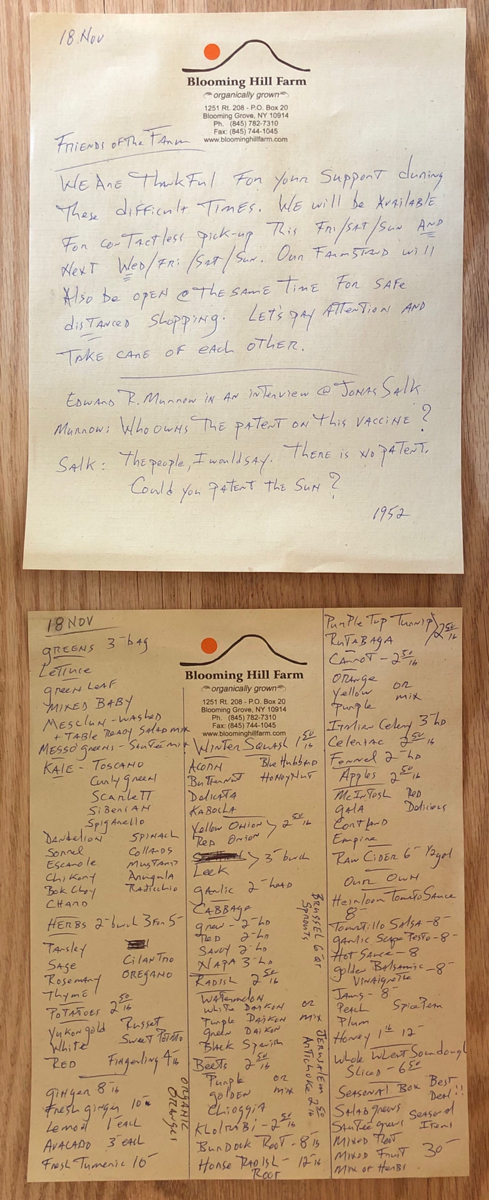 18 Nov
Blooming Hill Farm
organically grown
1251 Rt. 208 - P.O. Box 20
Blooming Grove, NY 10914
Ph. (845) 782-7310
Fax: (845) 744-1045
www.bloominghillfarm.com
Friends of the Farm
We Are Thankful For your support during
These difficult Times. We will be Available
For contactless pick-up This Fri/Sat/Sun AND
Next Wed/Fri/Sat/Sun. Our Farmstand will
Also be open @ the same time for safe
distanced shopping. Let's pay Attention AND
Take care of each other.
Edward R. Murrow in an interview @ Jonas Salk
Murrow: Who owns the patent on this vaccine?
Salk: The people, I would say. There is no patent.
Could you patent the Sun?
1952
18 Nov
Greens 3- bag
Lettuce
green leaf
Mixed Baby
Mesclun - washed
+ Table Ready Salad mix
Messo greens - Sautee mix
Kale - Toscano
Curly green
Scarlett
Siberian
Spigariello
Dandelion Spinach
Sorrel Collards
Escarole Mustard
Chikory Arugula
Bok Choy Radicchio
Chard
Herbs 2- bunch 3 for 5-
Parsley
Sage Cilantro
Rosemary Oregano
Thyme
Potatoes 2 50 lb
Yukon gold Russet
White Sweet Potato
Red Fingerling 4- lb
Ginger 8- lb
Fresh Ginger 10-
Lemon 1- each
Avacado 3- each
Fresh Tumeric 10-
Organic Oranges
Blooming Hill Farm
organically grown
1251 Rt. 208 - P.O. Box 20
Blooming Grove, NY 10914
Ph. (845) 782-7310
Fax: (845) 744-1045
www.bloominghillfarm.com
Winter Squash 1 50 lb
Acorn Blue Hubbard
Butternut Honeynut
Delicata
Kabocha
Yellow Onion 2 50 lb
Red Onion
3- bunch
Leek
garlic 2- head
Cabbage
green - 2- hd
Red 2- hd
Savoy 2- hd
Napa 3- hd
Radish 2 50 lb
Watermelon
White Daikon or
Purple Daikon mix
green Daikon
Black Spanish
Beets 2 50 lb
Purple or
golden mix
Chioggia
Kholrabi - 2 50 lb
Burdock Root - 8- lb
Horse Radish - 12- lb
Root
Brussel Sprouts 6 qt
Jerusalem Artichoke 2 50 lb
Purple Top Turnip 2 50 lb
Rutabaga
Carrot - 2 50 lb
Orange
Yellow or
Purple mix
Italian Celery 3- hd
Celeriac 2 50 lb
Fennel 2- hd
Apples 2 50 lb
McIntosh Red
Gala Delicious
Cortland
Empire
Raw Cider 6- 1/2 gal
Our Own
Heirloom Tomato Sauce
8-
Tomatillo Salsa - 8-
garlic Scape Pesto - 8-
Hot Sauce - 8
golden Balsamic - 8-
Vinaigrette
Jams - 8-
Peach Spice Pear
Plum
Honey 1 lb 12-
Whole Wheat Sourdough
Sliced - 6-
Seasonal Box Best
Deal!!
Salad greens Seasonal
Sautee greens Items
Mixed Root
Mixed Fruit 30-
Mix of Herbs